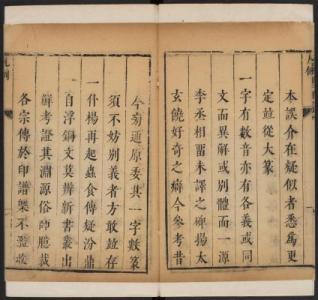 凡例
本誤介在疑似者悉爲更
定竝從大篆
一字有數音亦有各義或同
文而異解或別體而一源
李丞相畱未譯之碑揚太
玄饒好奇之癖今參考昔
今通原委其一字數篆
須不妨別義者方敢竝存
一什楊再起蟲食傳疑汾鼎
自浮銅文莫辨新書叢出
鮮考證其淵源俗師臆裁
各宗傳於印譜槩不濫收
凡例